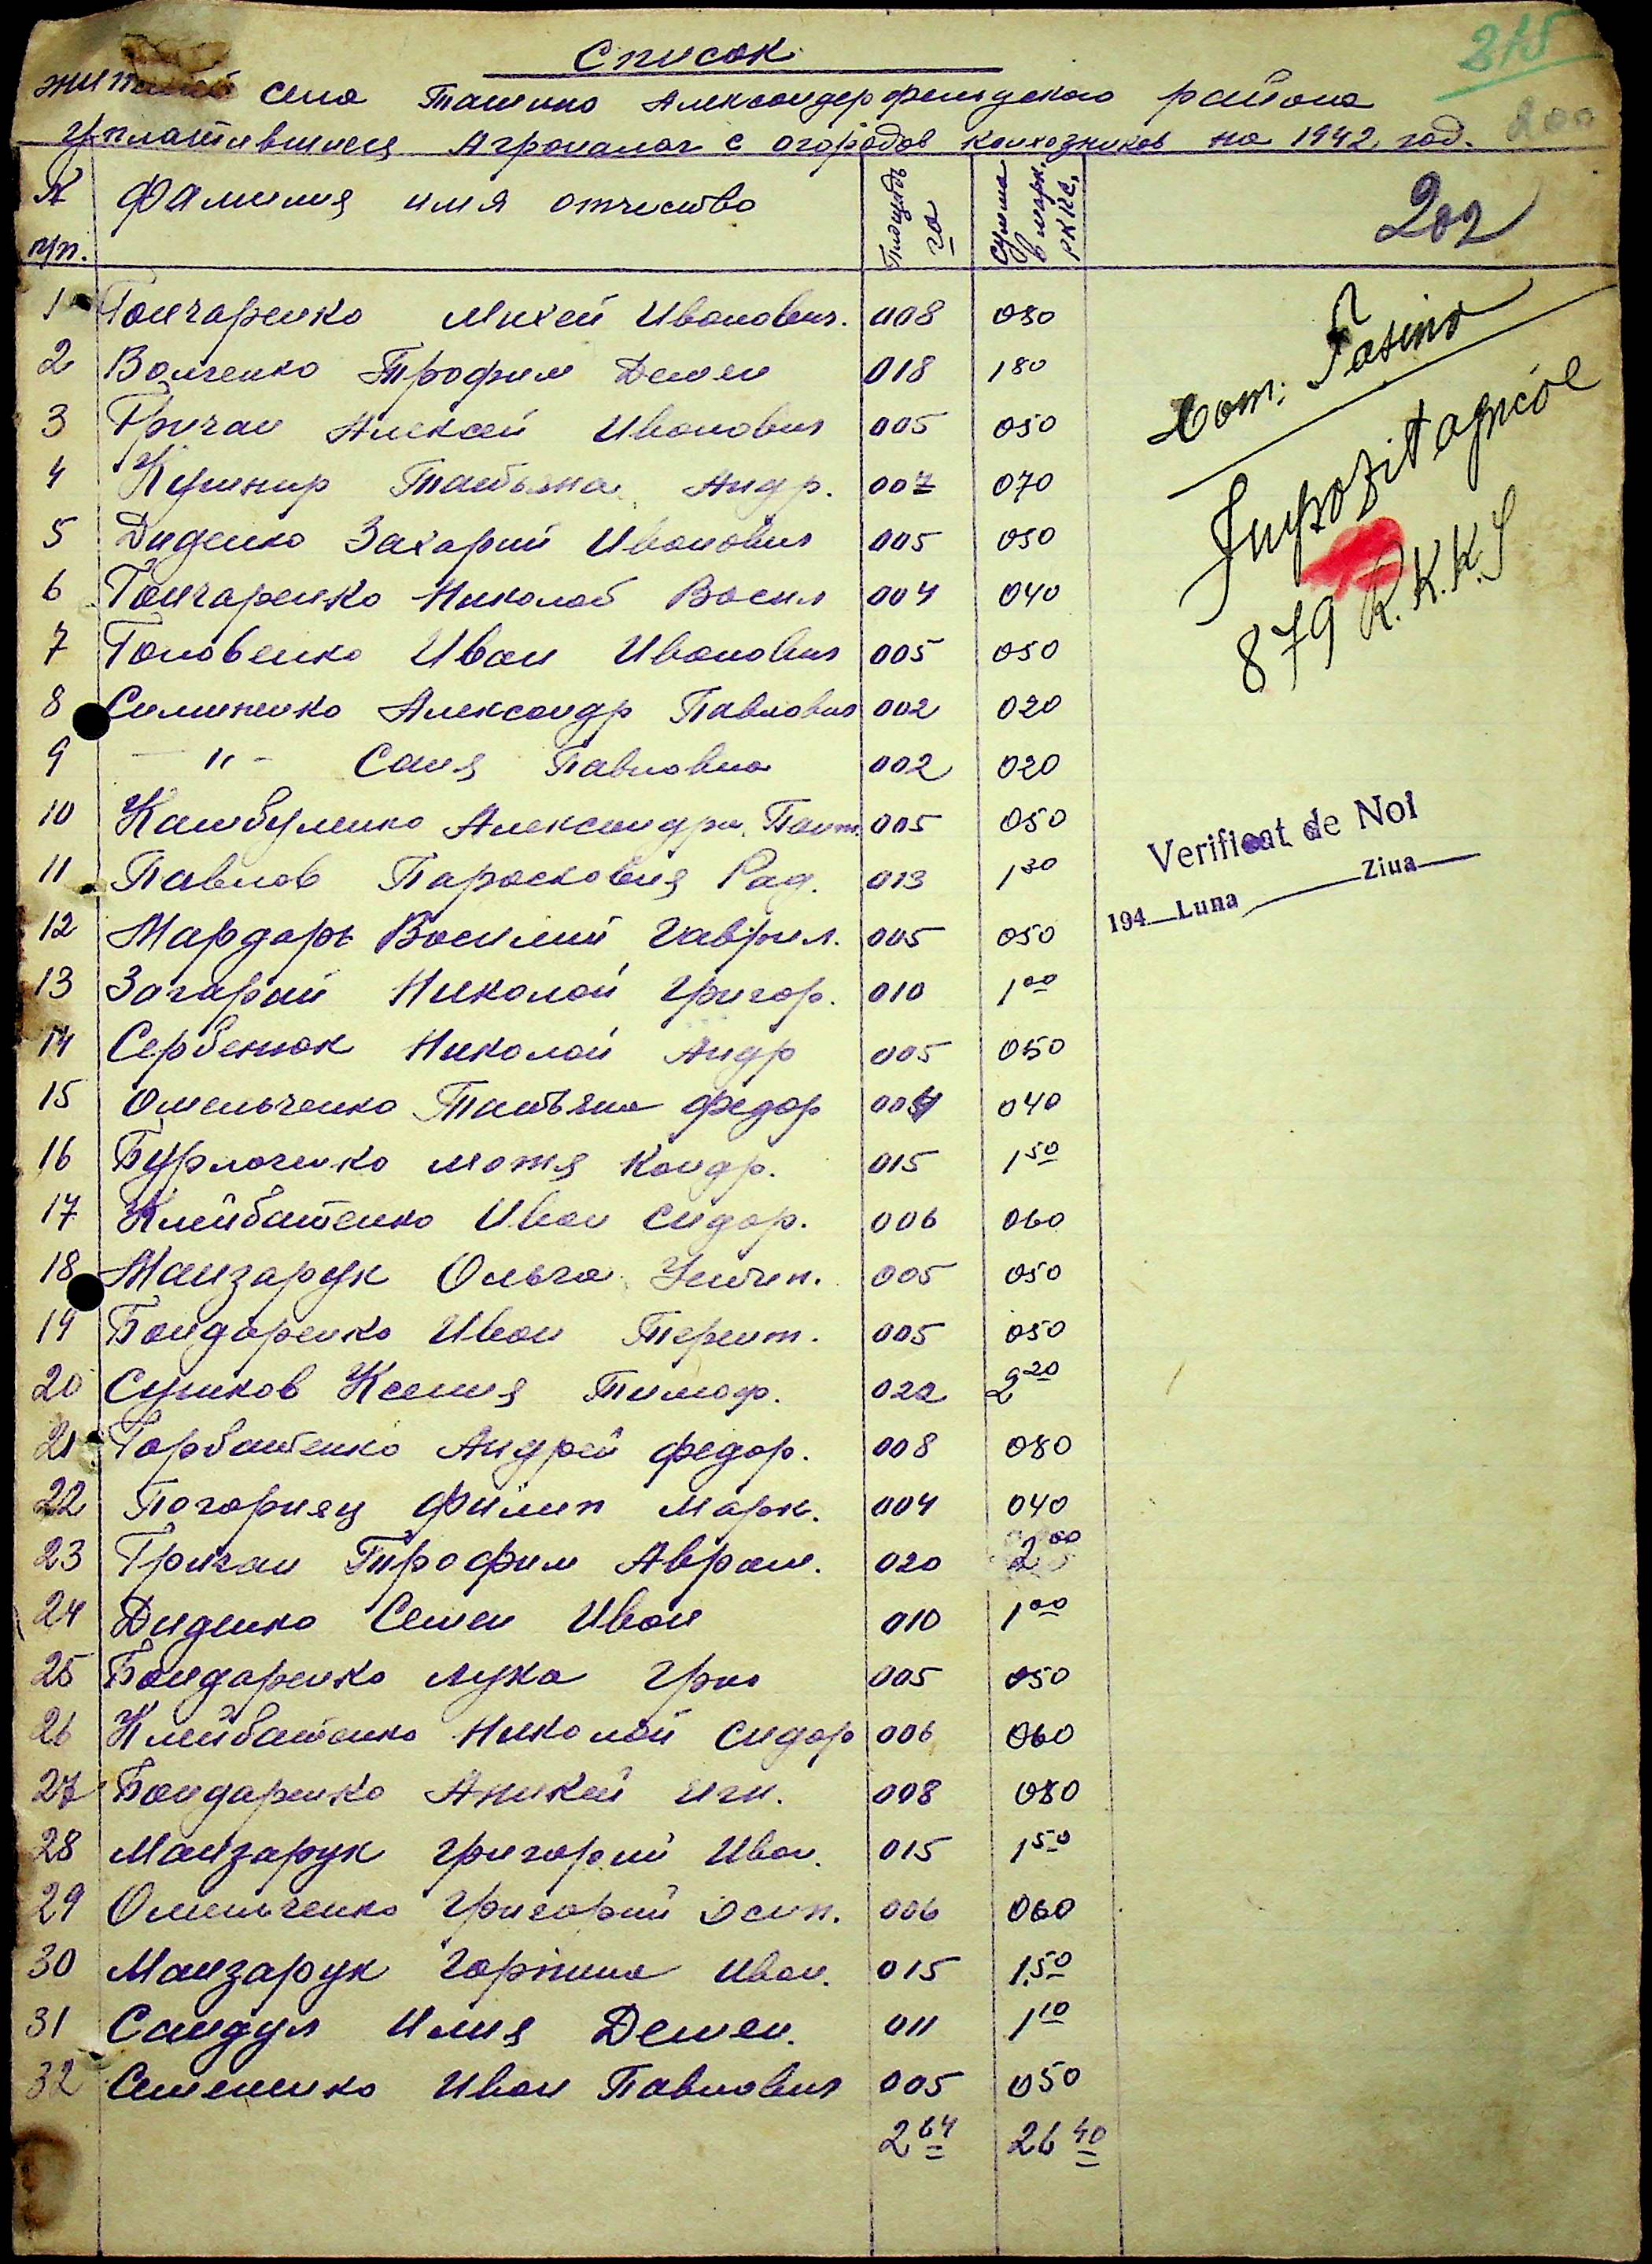 Список
315
жителей села Ташино Александерфельдского района
Уплативших Агроналог с огородов колхозников на 1942 год.
200
№ п/п. Фамилия имя отчество Площадь га Сумма в марк. РККС.
202
1 Гончаренко Михей Иванович. 008 080
2 Волченко Трофим Демен 018 180
3 Гричан Алексей Иванович 005 050
4 Кушнир Татьяна Андр. 007 070
5 Диденко Захарий Иванович 005 050
6 Гончаренко Николай Васил 004 040
7 Головенко Иван Иванович 005 050
8 Симиненко Александр Павлович 002 020
9 — " - Саня Павловна 002 020
10 Камбуленко Александра Пант. 005 050
11 Павлов Парасковия Рад. 013 1 30
12 Мардарь Василий Гаврил. 005 050
13 Загарий Николай Григор. 010 1 00
14 Сербенюк Николай Андр 005 050
15 Омельченко Татьяна Федор 004 040
16 Бурлаченко Мотя Кондр. 015 1 50
17 Клейбатенко Иван Сидор. 006 060
18 Манзарук Ольга 005 050
19 Бондаренко Иван Терент. 005 050
20 Сушков Ксения Тимоф. 022 2 20
21 Горбатенко Андрей Федор. 008 080
22 Погориляц Филип Марк. 004 040
23 Гричан Трофим Аврам. 020 2 00
24 Диденко Семен Иван 010 1 00
25 Бондаренко Лука Гри 005 050
26 Клейбатенко Николай Сидор 006 060
27 Бондаренко Аникей Игн. 008 080
28 Манзарук Григорий Иван. 015 1 50
29 Омельченко Григорий Осип. 006 060
30 Манзарук Горпина Иван. 015 1.50
31 Сандул Илия Демен. 011 1 10
32 Семененко Иван Павлович 005 050
2 64 26 40
Com: Tasino
Impozit agricol
879 R.K.K.S
Verificat de Noi
194 Luna Ziua